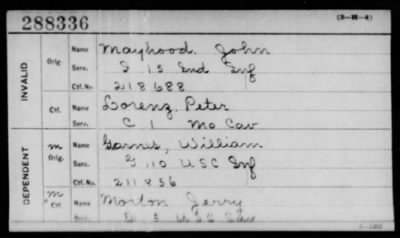 288336
(3-H-4)
INVALID
Orig. Name Mayhood, John
Serv. I 15 Ind Inf
Ctf. No. 218688
Ctf. Name Lorenz, Peter
Serv. C 1 Mo Cav
DEPENDENT
m Orig. Name William
Serv. 110 USC Inf
Ctf. No. 211856
m Ctf. Name Morton Jerry
Serv.